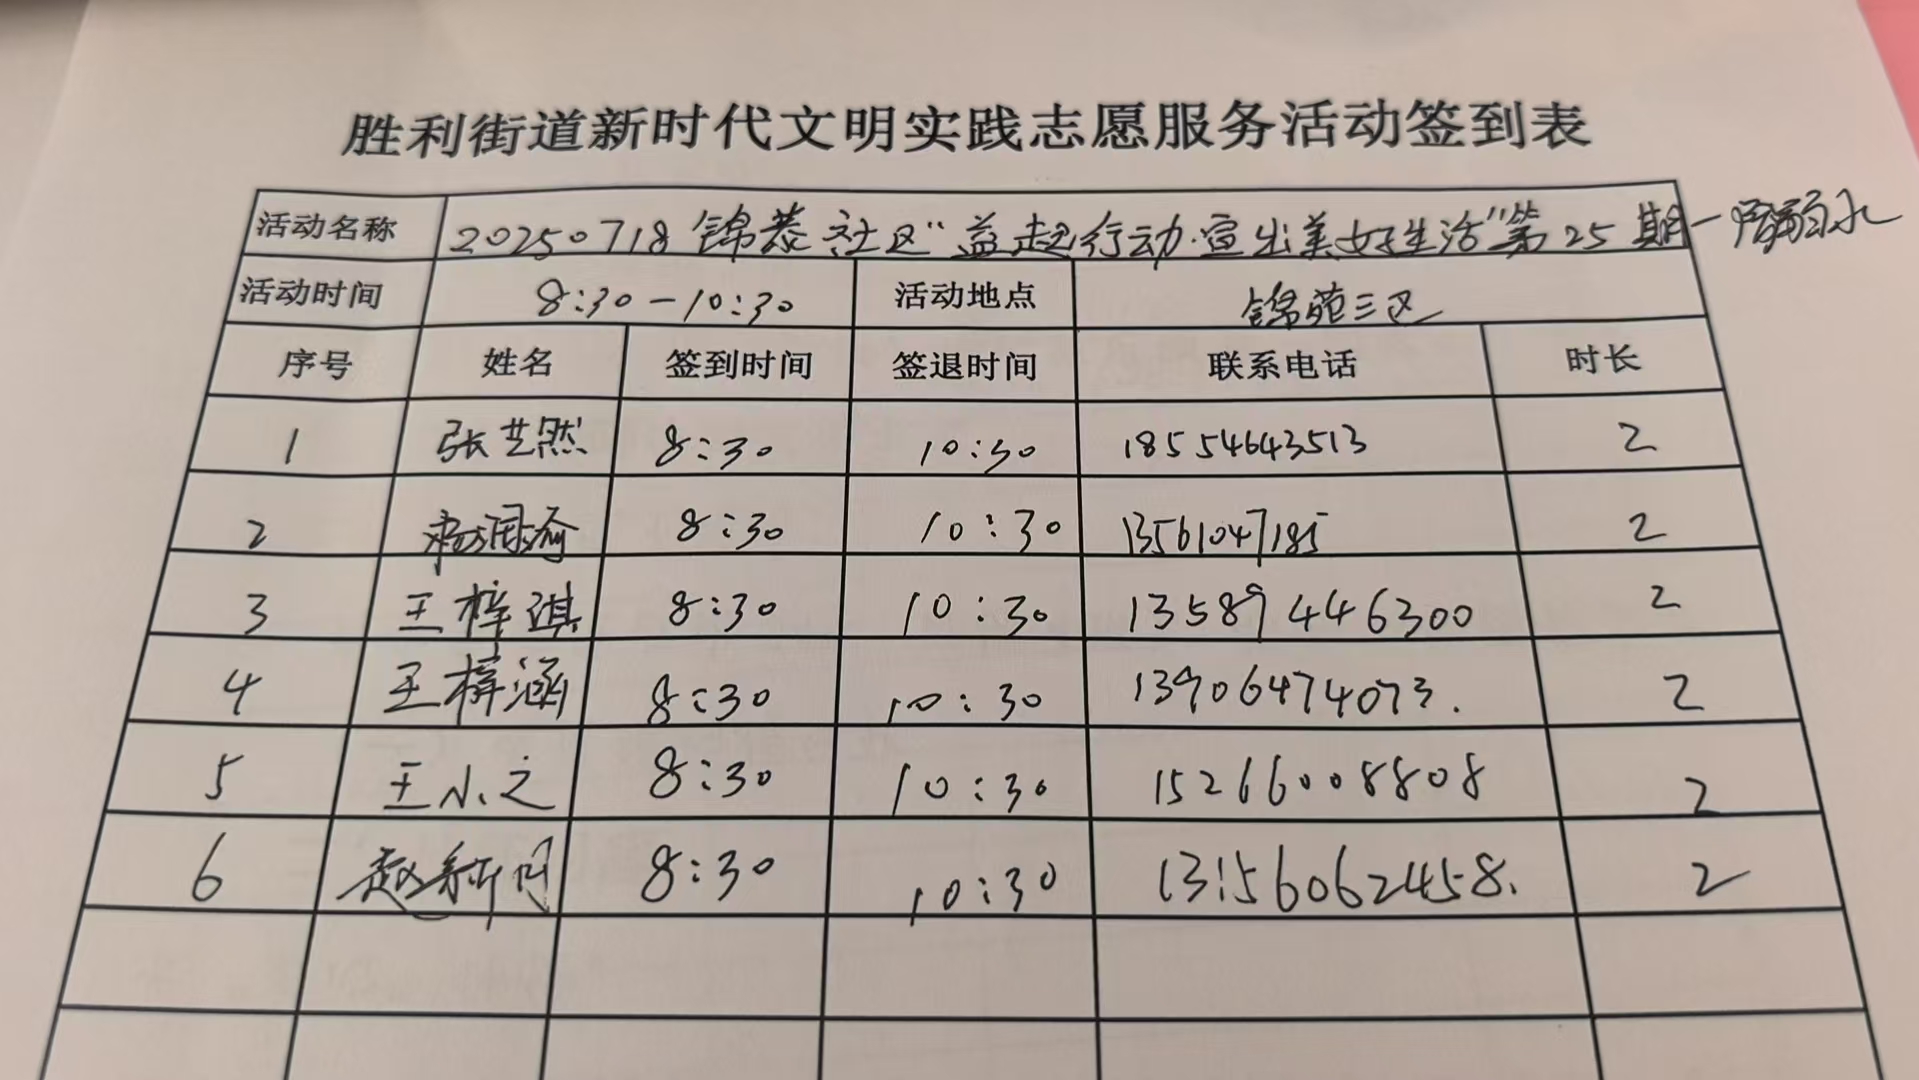 胜利街道新时代文明实践志愿服务活动签到表
活动名称 20250718锦泰社区“益起行动·宣出美好生活”第25期一
活动时间 8:30-10:30 活动地点 锦苑三区
序号 姓名 签到时间 签退时间 联系电话 时长
1 张艺然 8:30 10:30 18554643513 2
2 8:30 10:30 13561047185 2
3 王梓琪 8:30 10:30 13589446300 2
4 王梓涵 8:30 10:30 13906474073. 2
5 王小之 8:30 10:30 15266008808 2
6 赵新 8:30 10:30 13156062458. 2